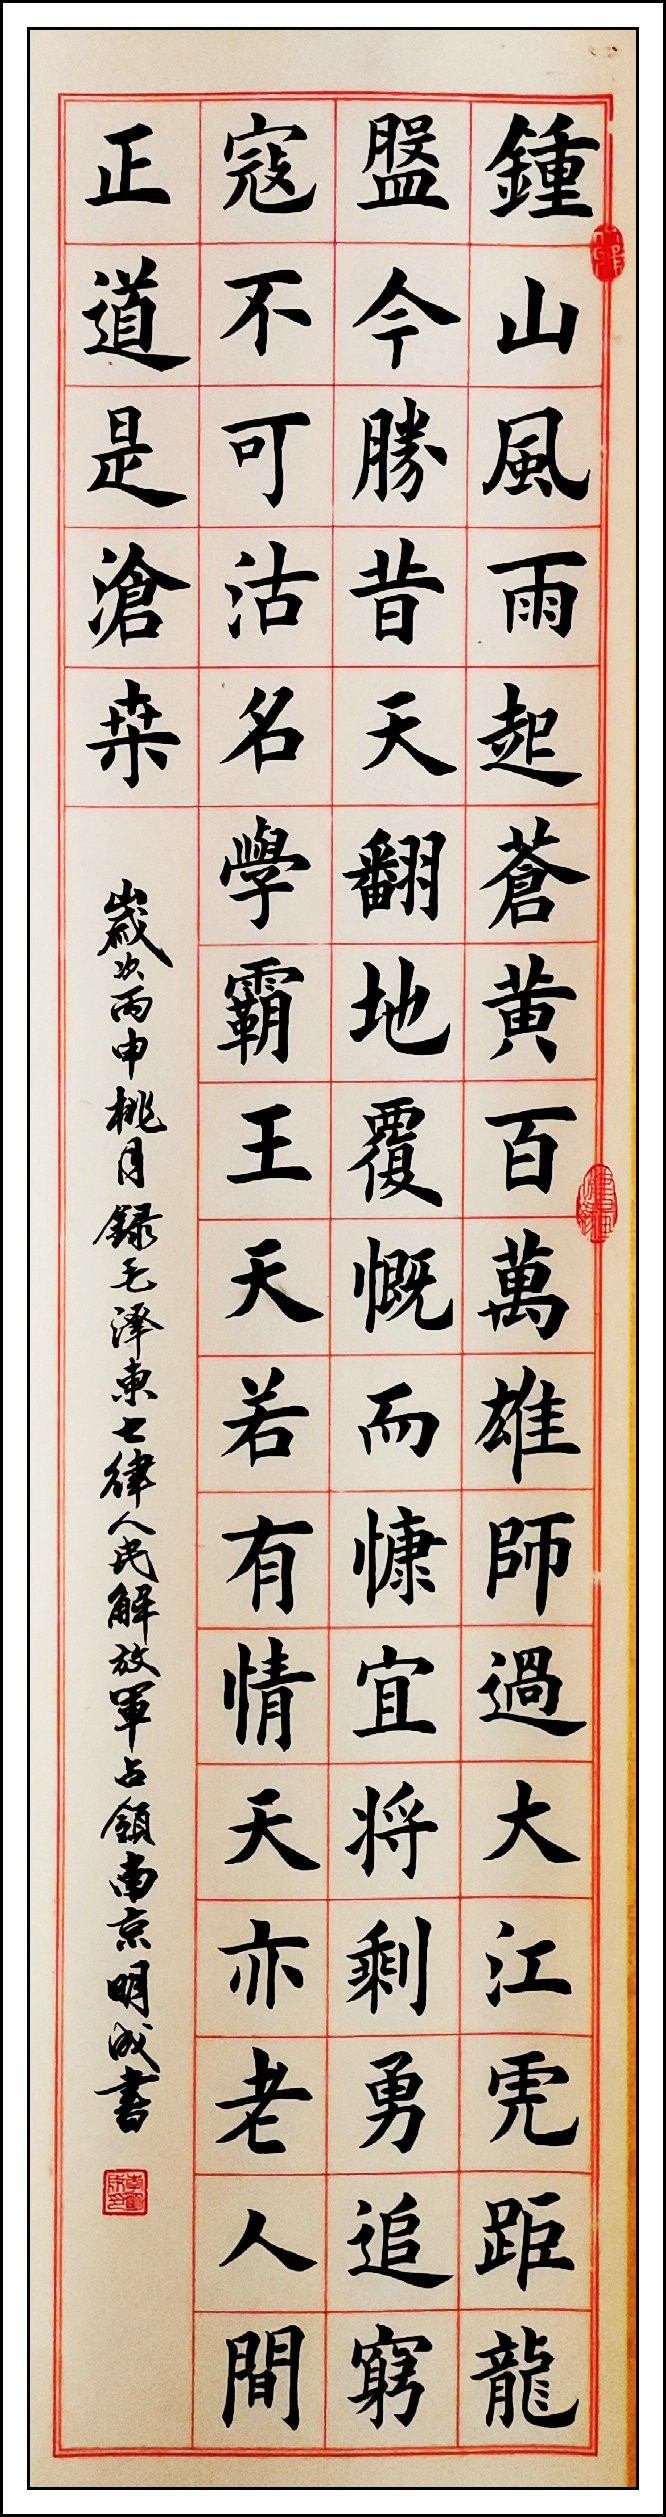 鍾山風雨起蒼黄百萬雄師過大江虎距龍
盤今勝昔天翻地覆慨而慷宜将剩勇追窮
寇不可沽名學霸王天若有情天亦老人間
正道是滄桒
歲次丙申桃月録毛泽東七律人民解放軍占領南京明成書